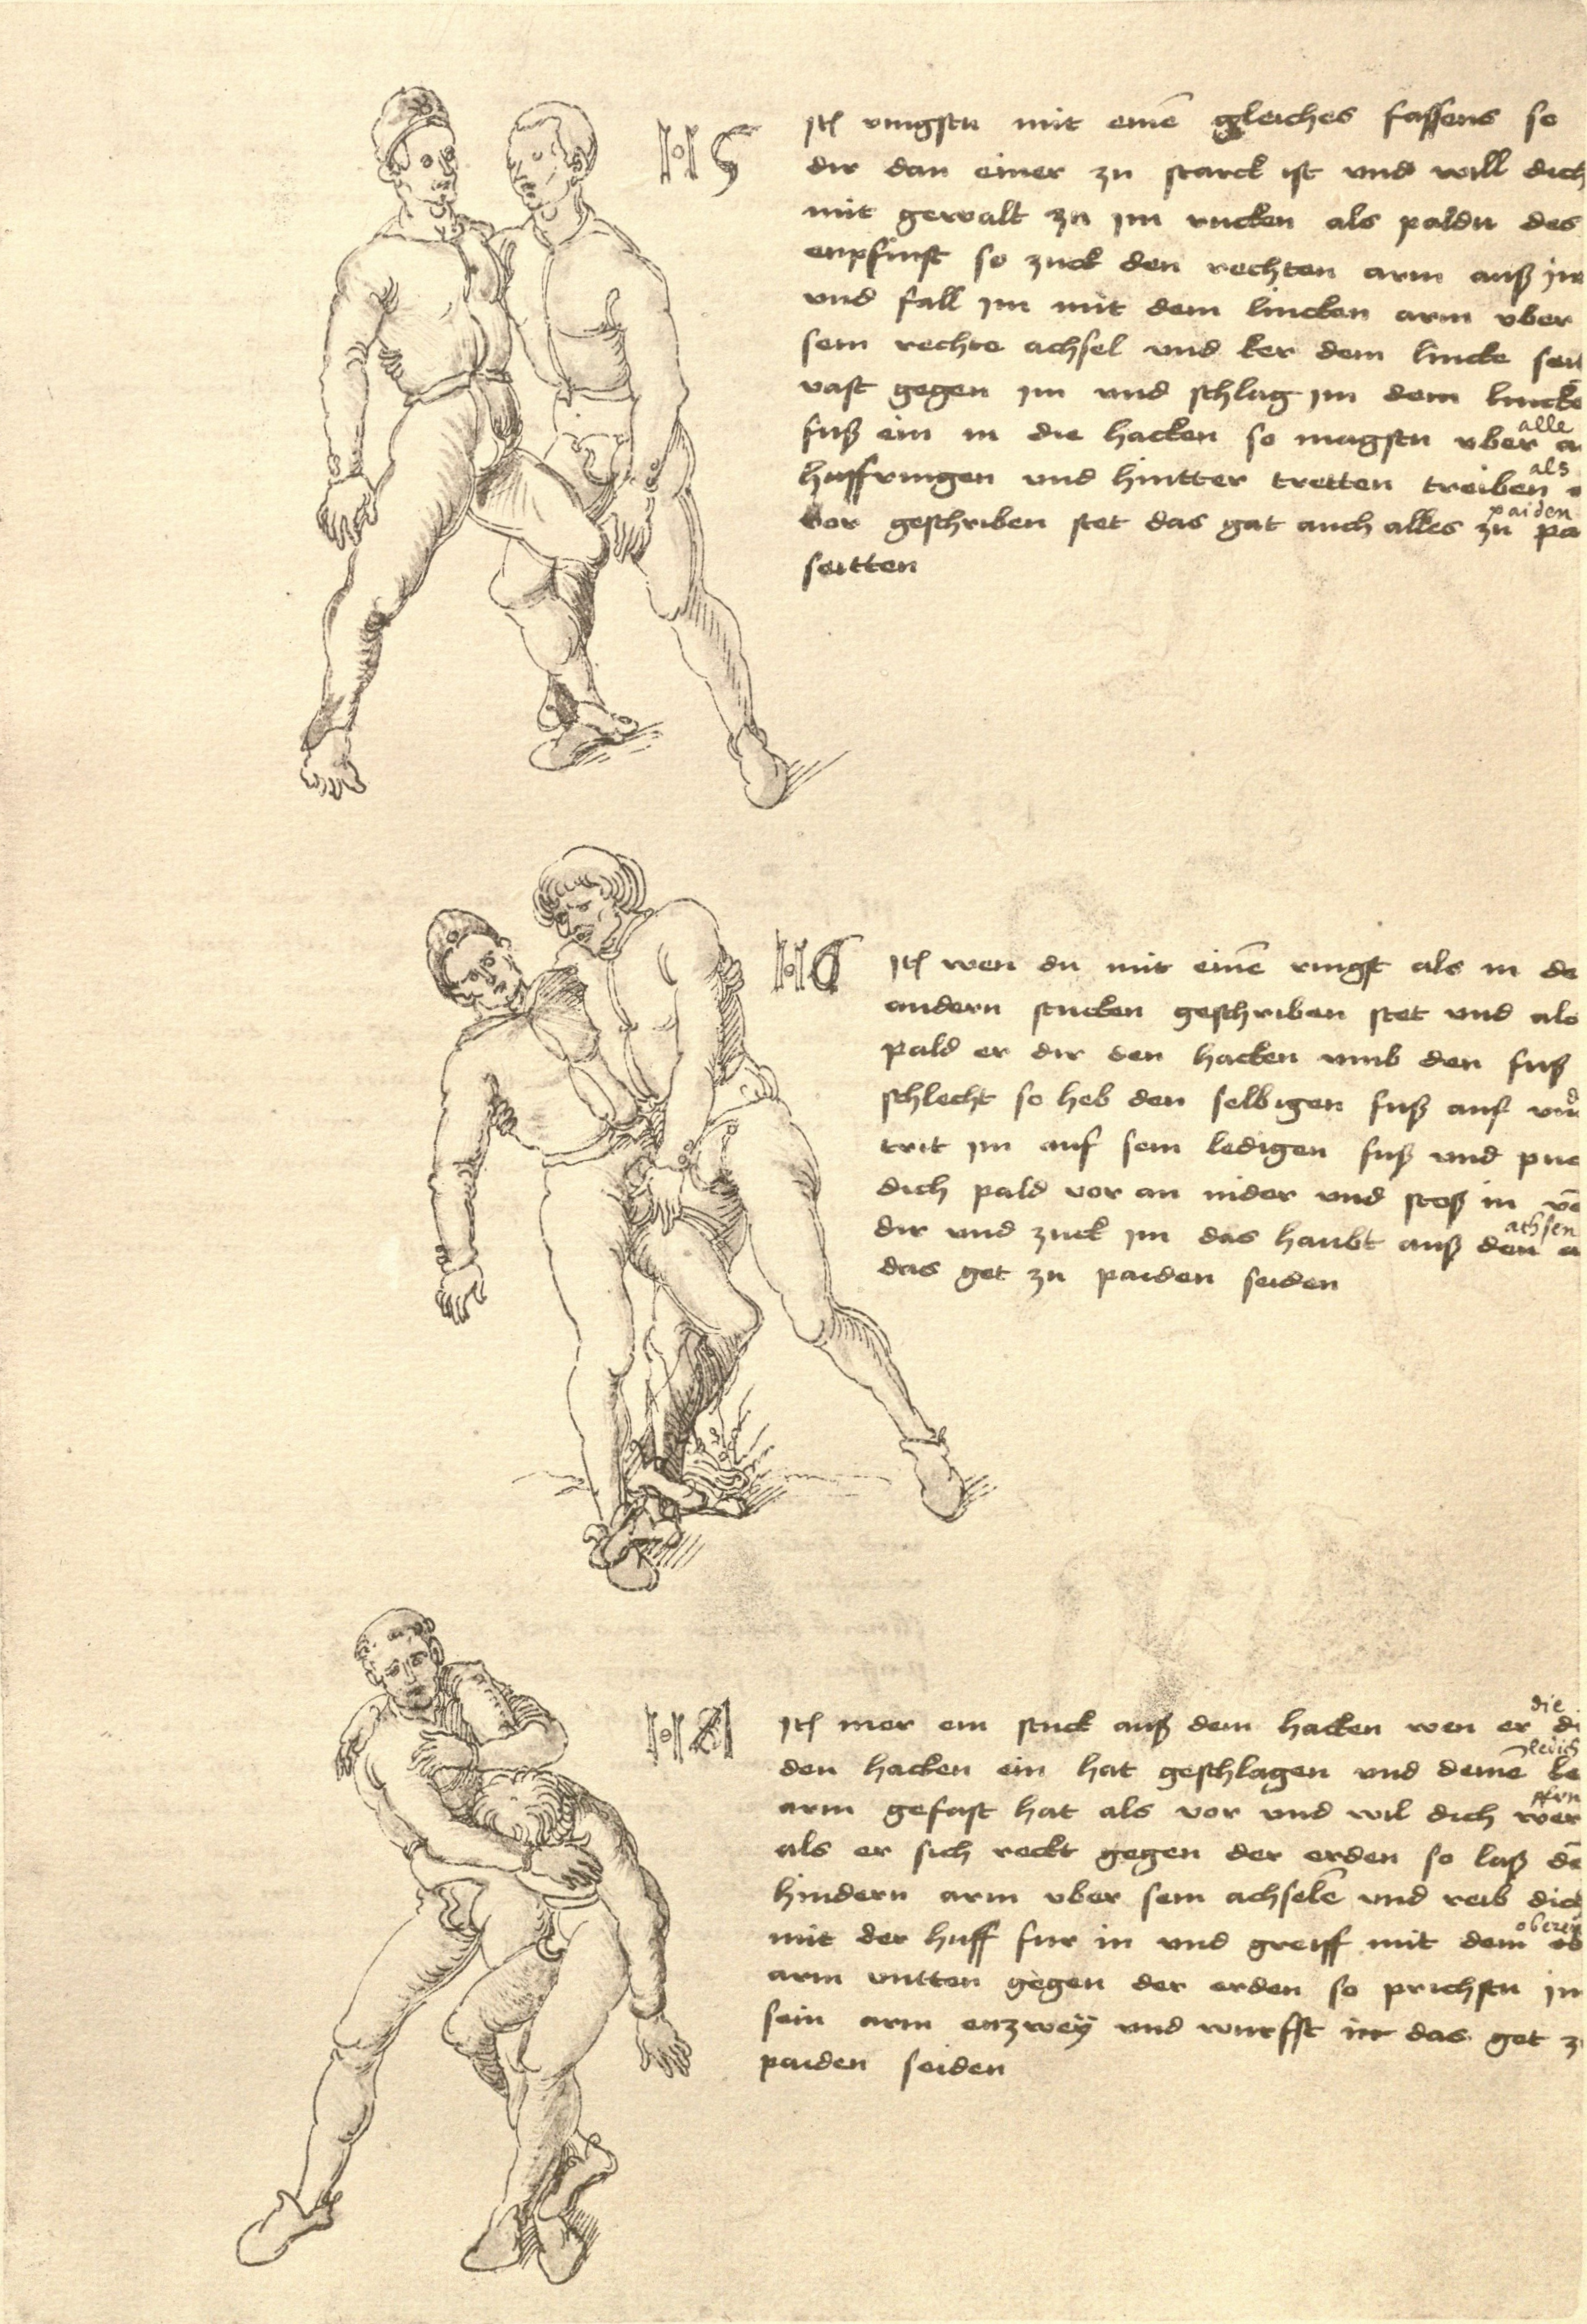 H5
Itē ringstu mit einē gleiches fassens so
dir dan einer zu starck ist und will dich
mit gewalt zu im rucken als paldu des
enpfinst so zuck den rechten arm auß im
und fall im mit dem lincken arm uber
sein rechte achsel und ker dein lincke seit
vast gegen im und schlag im dein lincke
alle
fuß ein in die hacken so magstu uber
als
huffringen und hintter tretten treiben
paiden
vor geschriben stet das gat auch alles zu pa
seitten
H6
Itē wen du mit einē ringst als in de
andern stucken geschriben stet und als
pald er dir den hacken umb den fuß
schlecht so heb den selbigen fuß auf und
trit im auf sein ledigen fuß und puc
dich pald vor an nider und stoß in vō
achsen
dir und zuck im das haubt auß den
das get zu paiden seiden
die
Itē mer ein stuck auß dem hacken wen er di
den hacken ein hat geschlagen und deinē le
arm gefast hat als vor und wil dich wer
als er sich reckt gegen der erden so laß dē
hindern arm uber sein achselē und reib dich
oberē
mit der huff fur in und greiff mit dem ob
arm untten gegen der erden so prichstu im
sein arm enzwey und wurfst in das get zu
paiden seiden